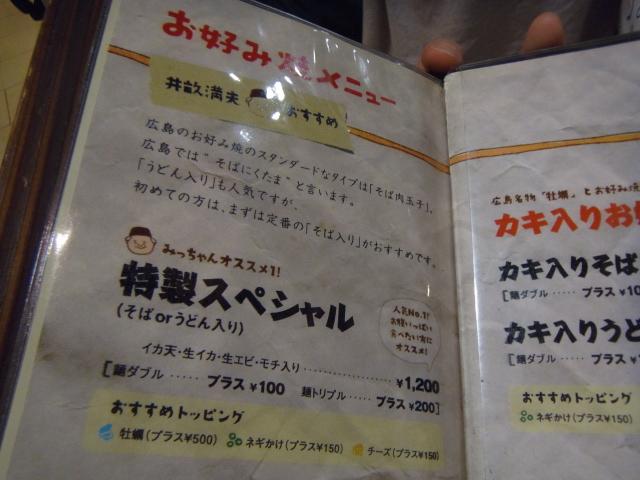 お好み焼メニュー
井畝満夫 おすすめ
広島のお好み焼のスタンダードなタイプは「そば肉玉子」。
広島では"そばにくたま"と言います。
「うどん入り」も人気ですが、
初めての方は、まずは定番の「そば入り」がおすすめです。
みっちゃんオススメ1!
特製スペシャル
(そばorうどん入り)
人気No.1!
お腹いっぱい
食べたい方に
オススメ!
イカ天・生イカ・生エビ・モチ入り ‥‥‥‥‥‥ ¥1,200
[麺ダブル ‥‥‥ プラス ¥100 麺トリプル ‥‥‥ プラス ¥200]
おすすめトッピング
牡蠣(プラス¥500) ネギかけ(プラス¥150) チーズ(プラス¥150)
広島名物「牡蠣」とお好み焼
カキ入りお
カキ入りそば
[麺ダブル ‥‥‥ プラス ¥10
カキ入りうど
[麺ダブル ‥‥‥ プラス ¥
おすすめトッピング
ネギかけ(プラス¥150)